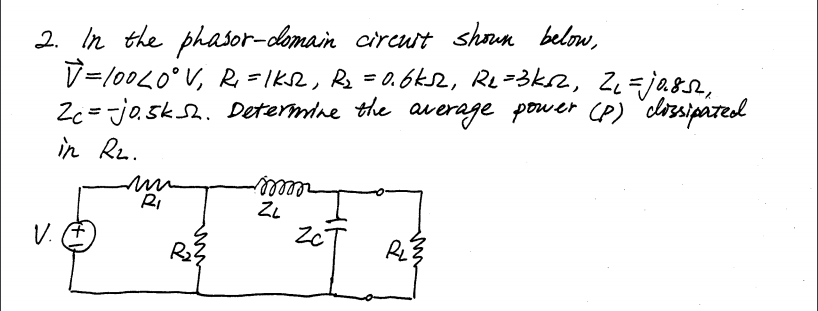 2. In the phasor-domain circuit shown below,
V⃗=100∠0° V, R₁=1kΩ, R₂=0.6kΩ, RL=3kΩ, ZL=j0.8Ω,
ZC=-j0.5kΩ. Determine the average power (P) dissipated
in RL.
R₁
ZL
V.
+
−
R₂
ZC
RL